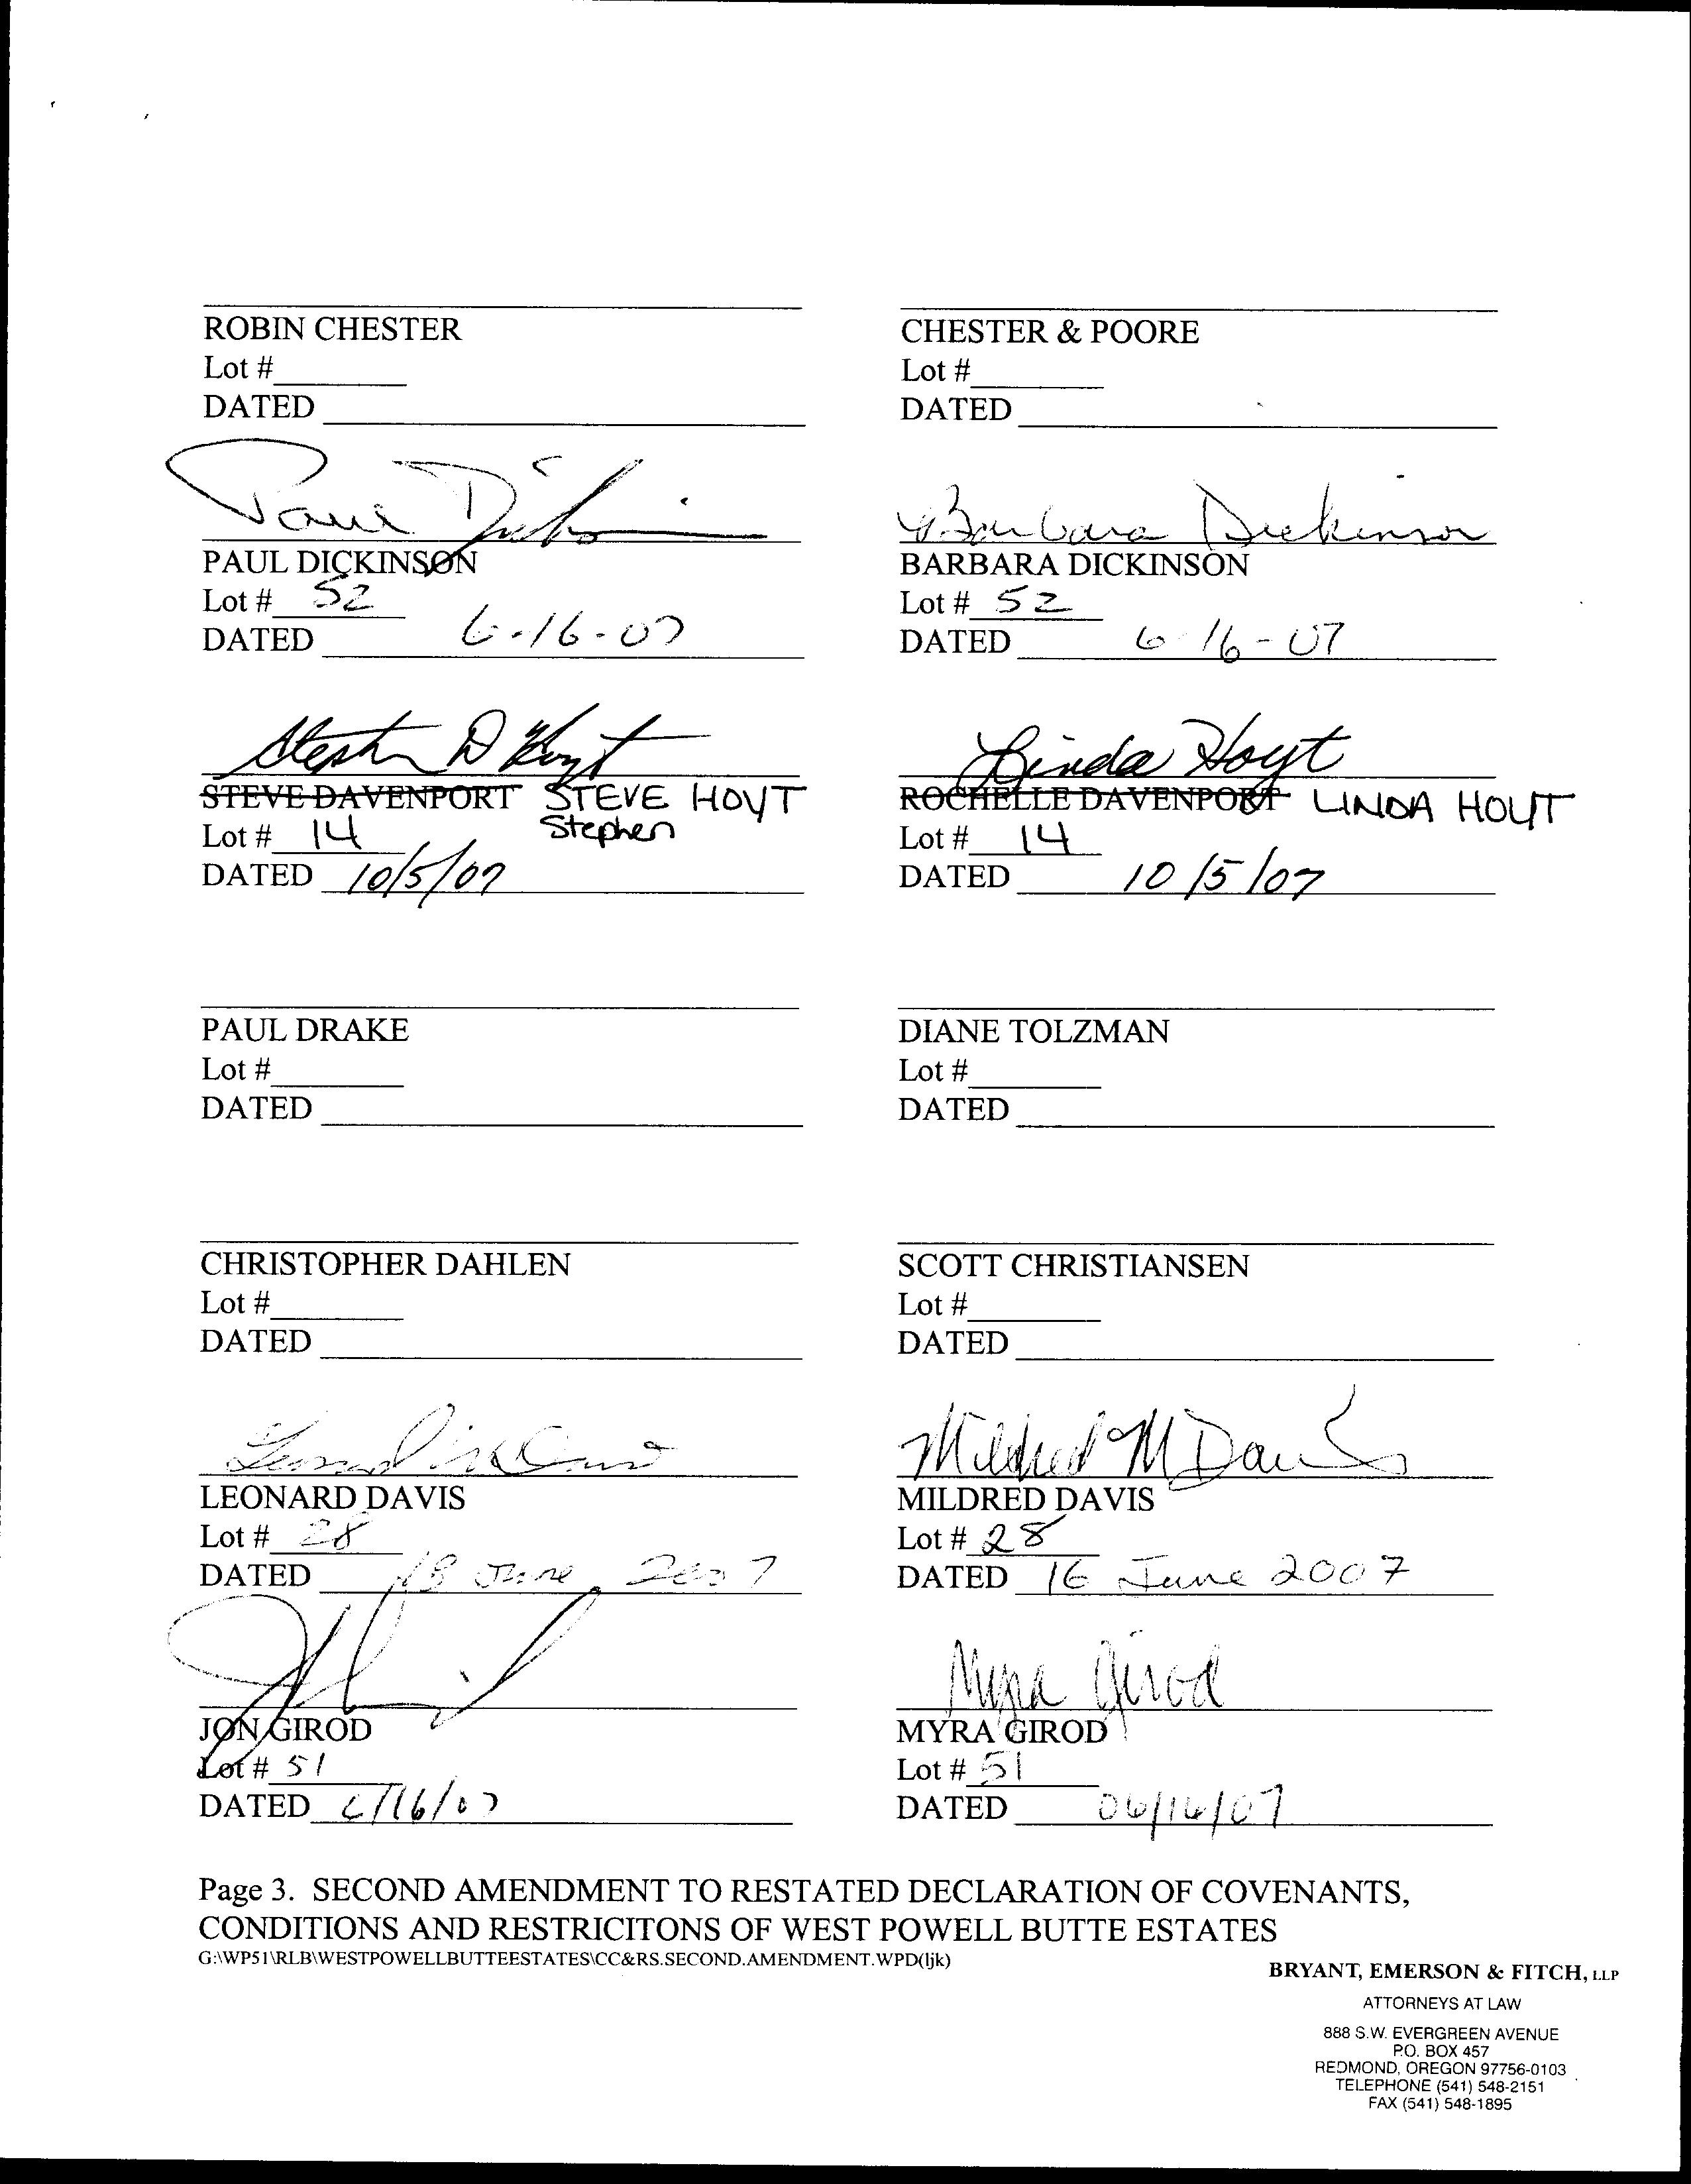 ROBIN CHESTER
Lot #
DATED
CHESTER & POORE
Lot #
DATED
Paul Dickinson
PAUL DICKINSON
Lot # 52
DATED 6-16-07
Barbara Dickinson
BARBARA DICKINSON
Lot # 52
DATED 6-16-07
Stephen D Hoyt
STEVE DAVENPORT STEVE HOYT
Stephen
Lot # 14
DATED 10/5/07
Linda Hoyt
ROCHELLE DAVENPORT LINDA HOYT
Lot # 14
DATED 10/5/07
PAUL DRAKE
Lot #
DATED
DIANE TOLZMAN
Lot #
DATED
CHRISTOPHER DAHLEN
Lot #
DATED
SCOTT CHRISTIANSEN
Lot #
DATED
LEONARD DAVIS
Lot # 28
DATED June, 2007
Mildred M Davis
MILDRED DAVIS
Lot # 28
DATED 16 June 2007
JON GIROD
Lot # 51
DATED 6/16/07
Myra Girod
MYRA GIROD
Lot # 51
DATED 06/16/07
Page 3. SECOND AMENDMENT TO RESTATED DECLARATION OF COVENANTS,
CONDITIONS AND RESTRICITONS OF WEST POWELL BUTTE ESTATES
G:\WP51\RLB\WESTPOWELLBUTTEESTATES\CC&RS.SECOND.AMENDMENT.WPD(ljk)
BRYANT, EMERSON & FITCH, LLP
ATTORNEYS AT LAW
888 S.W. EVERGREEN AVENUE
P.O. BOX 457
REDMOND, OREGON 97756-0103
TELEPHONE (541) 548-2151
FAX (541) 548-1895